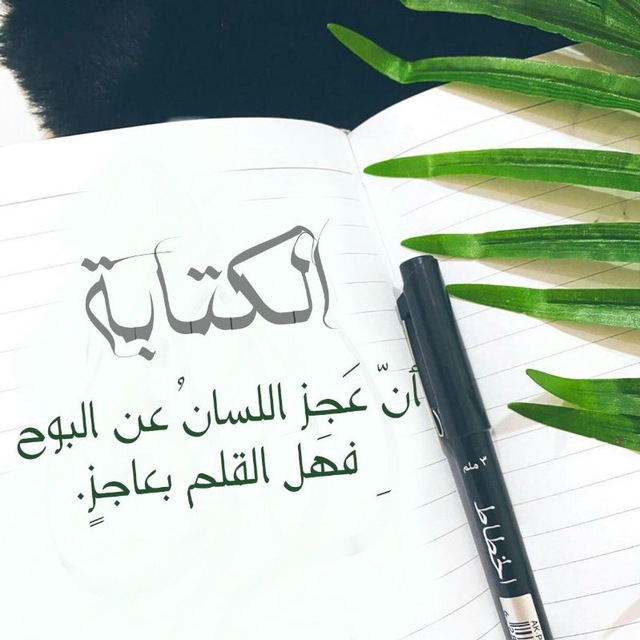 الكتابة
أنّ عَجِز اللسانُ عن البوح
فهَل القلم بعاجزٍ.
٣ ملم
الخطاط